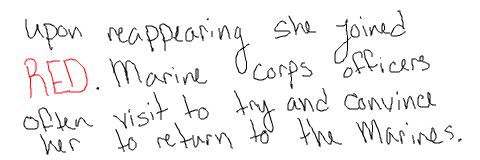 upon reappearing she joined
RED. Marine corps officers
often visit to try and convince
her to return to the Marines.